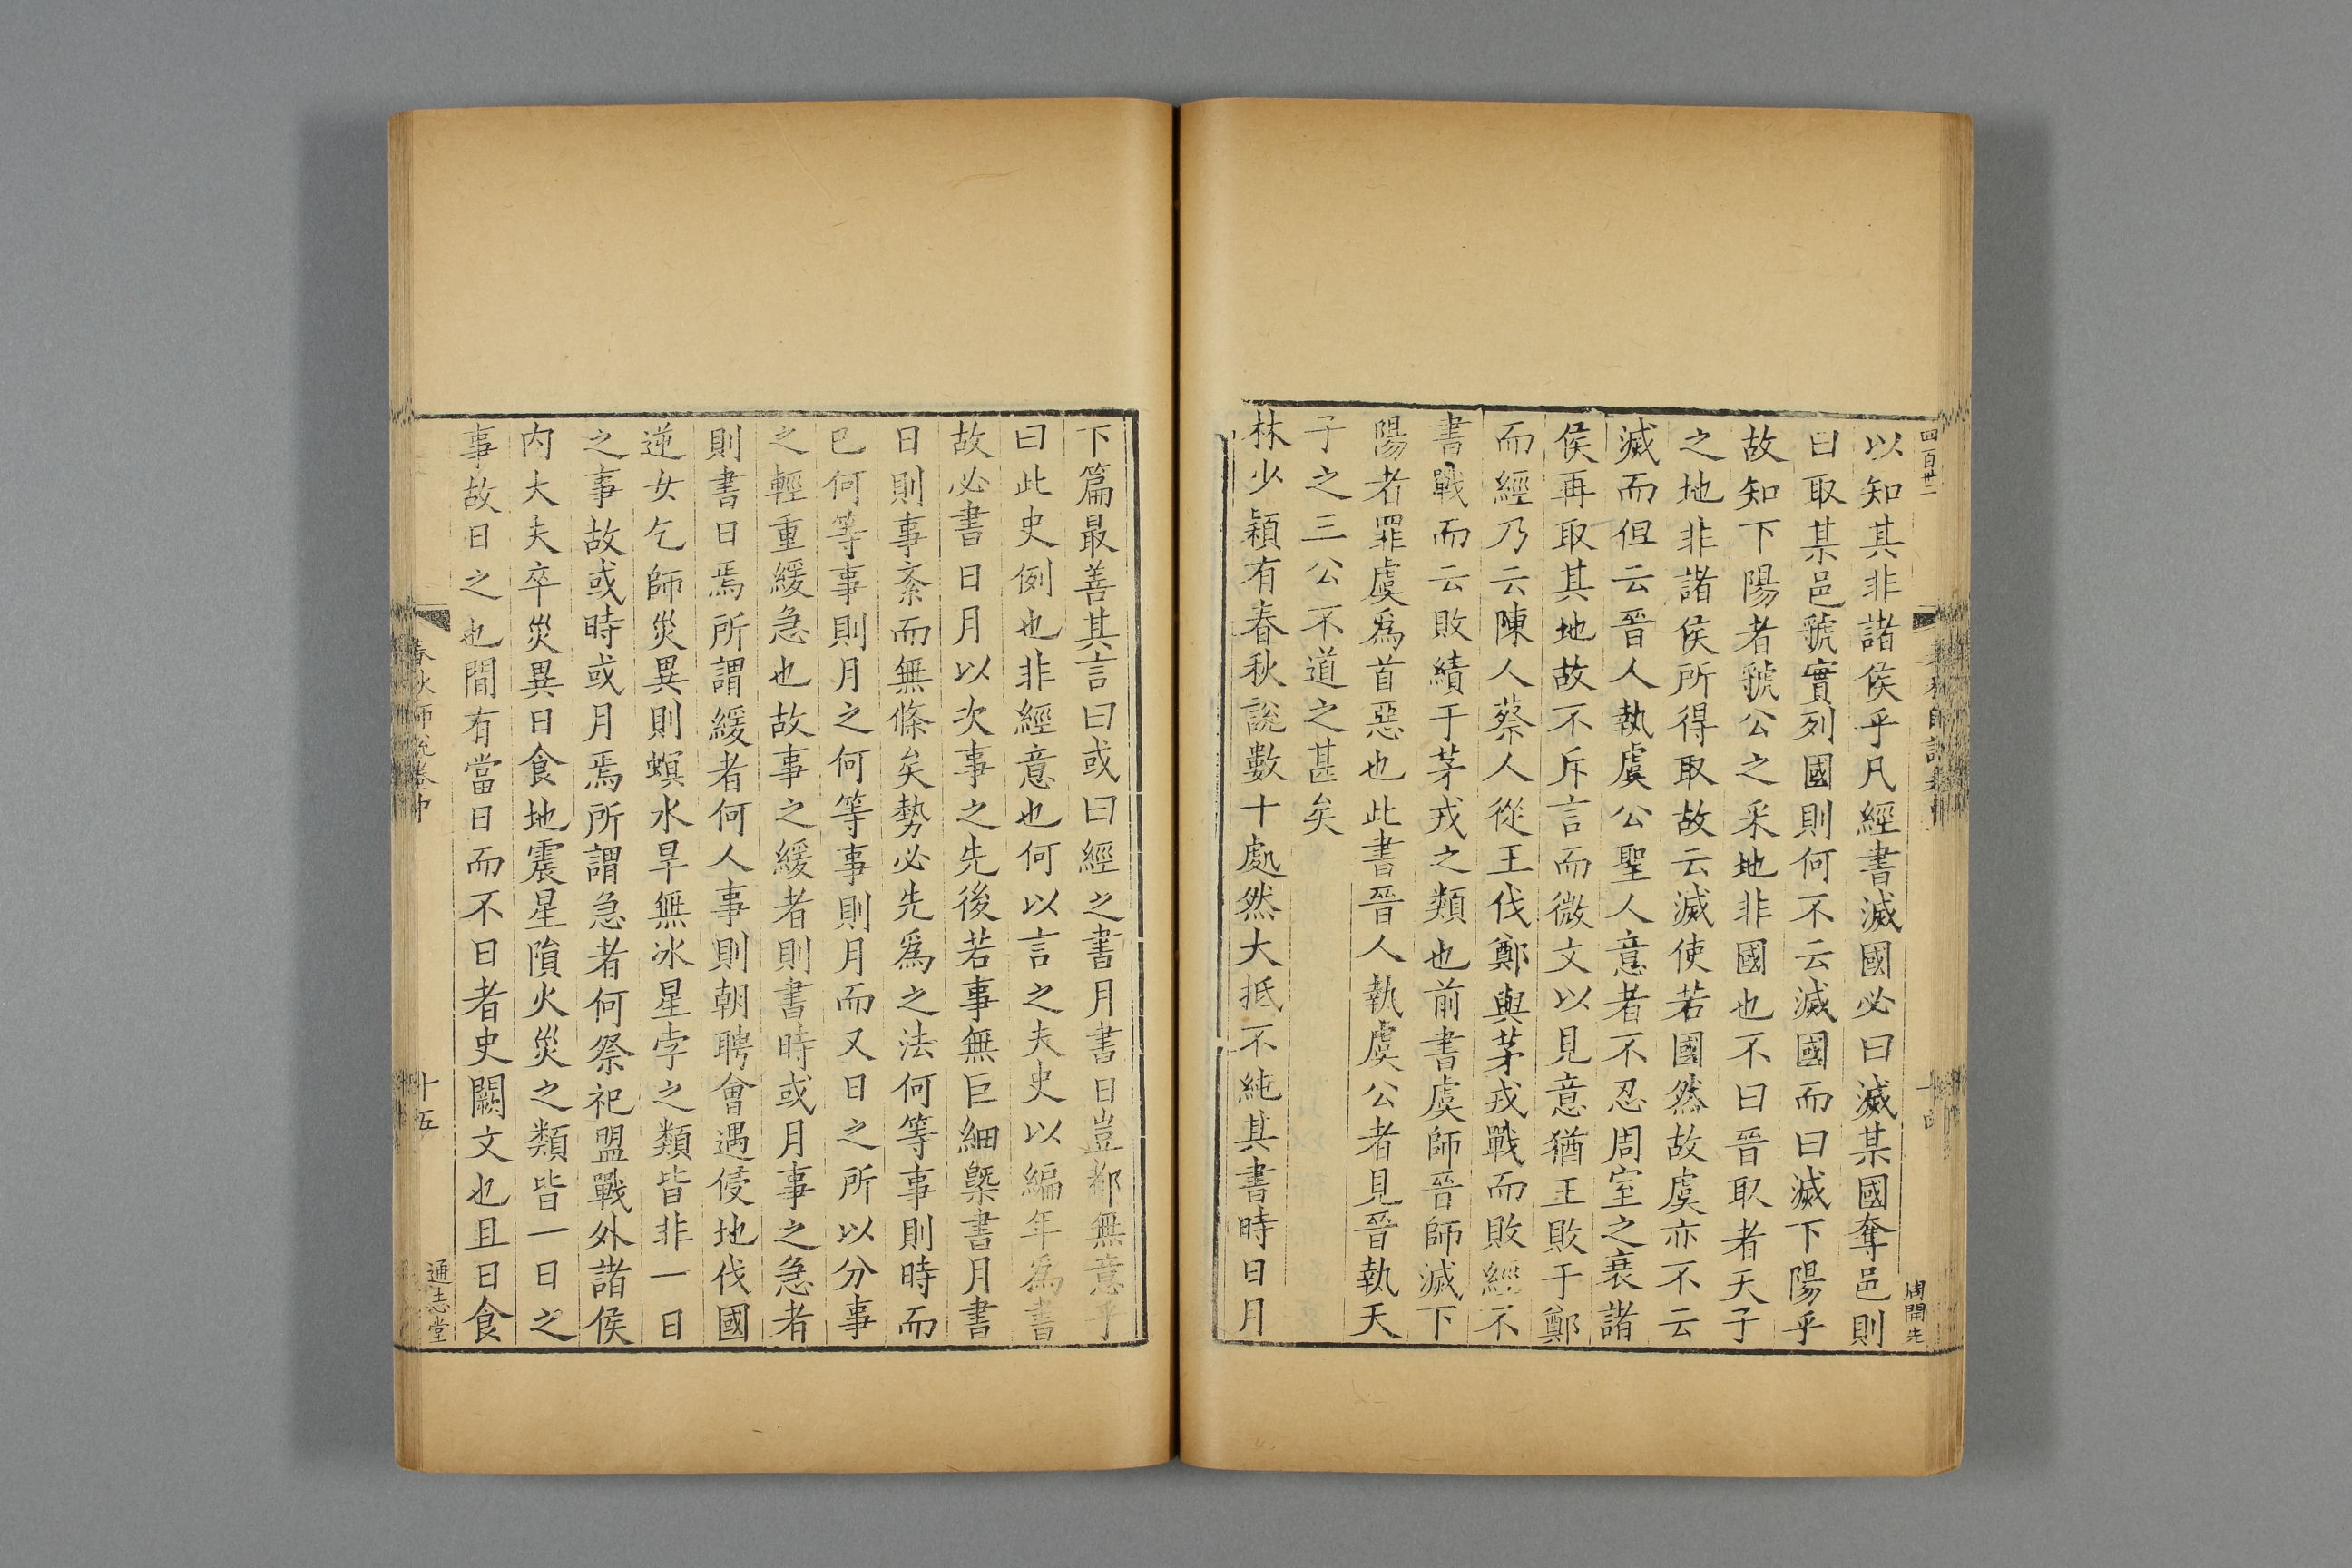 四百廿二
以知其非諸侯乎凡經書滅國必曰滅某國奪邑則
曰取某邑虢實列國則何不云滅國而曰滅下陽乎
故知下陽者虢公之采地非國也不曰晉取者天子
之地非諸侯所得取故云滅使若國然故虞亦不云
滅而但云晉人執虞公聖人意者不忍周室之衰諸
侯再取其地故不斥言而微文以見意猶王敗于鄭
而經乃云陳人蔡人從王伐鄭與茅戎戰而敗經不
書戰而云敗績于茅戎之類也前書虞師晉師滅下
陽者罪虞爲首惡也此書晉人執虞公者見晉執天
子之三公不道之甚矣
林少穎有春秋說數十處然大抵不純其書時日月
周開先
下篇最善其言曰或曰經之書月書日豈都無意乎
曰此史例也非經意也何以言之夫史以編年爲書
故必書日月以次事之先後若事無巨細槩書月書
日則事紊而無條矣勢必先爲之法何等事則時而
已何等事則月之何等事則月而又日之所以分事
之輕重緩急也故事之緩者則書時或月事之急者
則書日焉所謂緩者何人事則朝聘會遇侵地伐國
逆女乞師災異則螟水旱無冰星孛之類皆非一日
之事故或時或月焉所謂急者何祭祀盟戰外諸侯
内大夫卒災異日食地震星隕火災之類皆一日之
事故日之也間有當日而不日者史闕文也且日食
春秋師說卷中
十五
通志堂